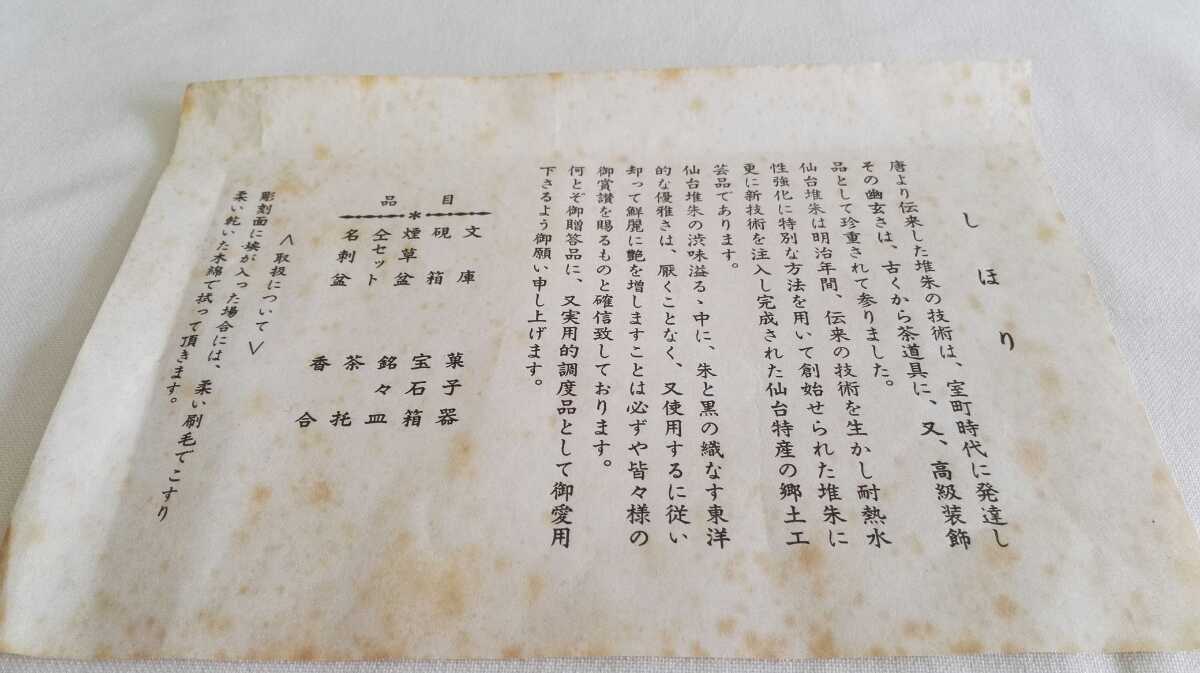 しほり
唐より伝来した堆朱の技術は、室町時代に発達し
その幽玄さは、古くから茶道具に、又、高級装飾
品として珍重されて参りました。
仙台堆朱は明治年間、伝来の技術を生かし耐熱水
性強化に特別な方法を用いて創始せられた堆朱に
更に新技術を注入し完成された仙台特産の郷土工
芸品であります。
仙台堆朱の渋味溢るゝ中に、朱と黒の織なす東洋
的な優雅さは、厭くことなく、又使用するに従い
却って鮮麗に艶を増しますことは必ずや皆々様の
御賞讃を賜るものと確信致しております。
何とぞ御贈答品に、又実用的調度品として御愛用
下さるよう御願い申し上げます。
品目
文庫
硯箱
煙草盆
仝セット
名刺盆
菓子器
宝石箱
銘々皿
茶托
香合
<取扱について>
彫刻面に埃が入った場合には、柔い刷毛でこすり
柔い乾いた木綿で拭って頂きます。